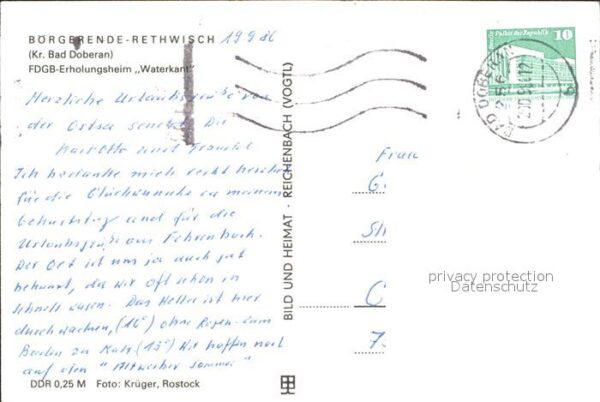 BÖRGERENDE-RETHWISCH 19 9 86
(Kr. Bad Doberan)
FDGB-Erholungsheim „Waterkant"
Herzliche Urlaubsgrüße von
der Ostsee sendet Dir
Karlotto und Traudel
Ich bedanke mich recht herzlich
für die Glückwünsche zu meinem
Geburtstag und für die
Urlaubsgrüße aus Fehrenbach.
Der Ort ist uns ja auch gut
bekannt, da wir oft schon in
waren. Das Wetter ist hier
durchwachsen, (16°) ohne Regen zum
Baden zu kalt (15°) Wir hoffen noch
auf den "Altweiber Sommer"
DDR 0,25 M Foto: Krüger, Rostock
BILD UND HEIMAT · REICHENBACH (VOGTL)
Palast der Republik
10
BAD DOBERAN
2560
Frau
G
St
C
7
privacy protection
Datenschutz